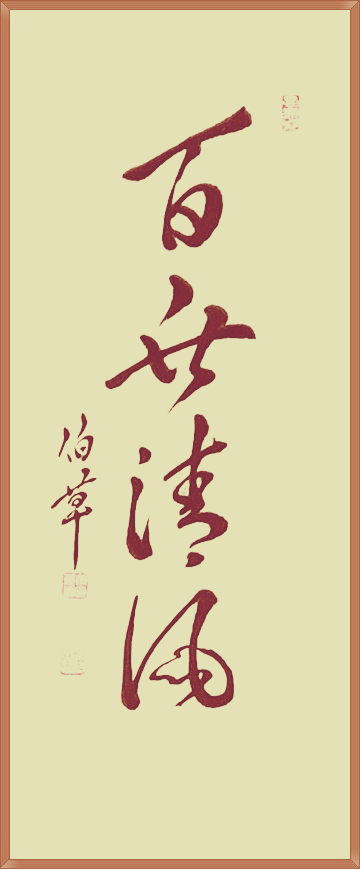 百世清風
伯草